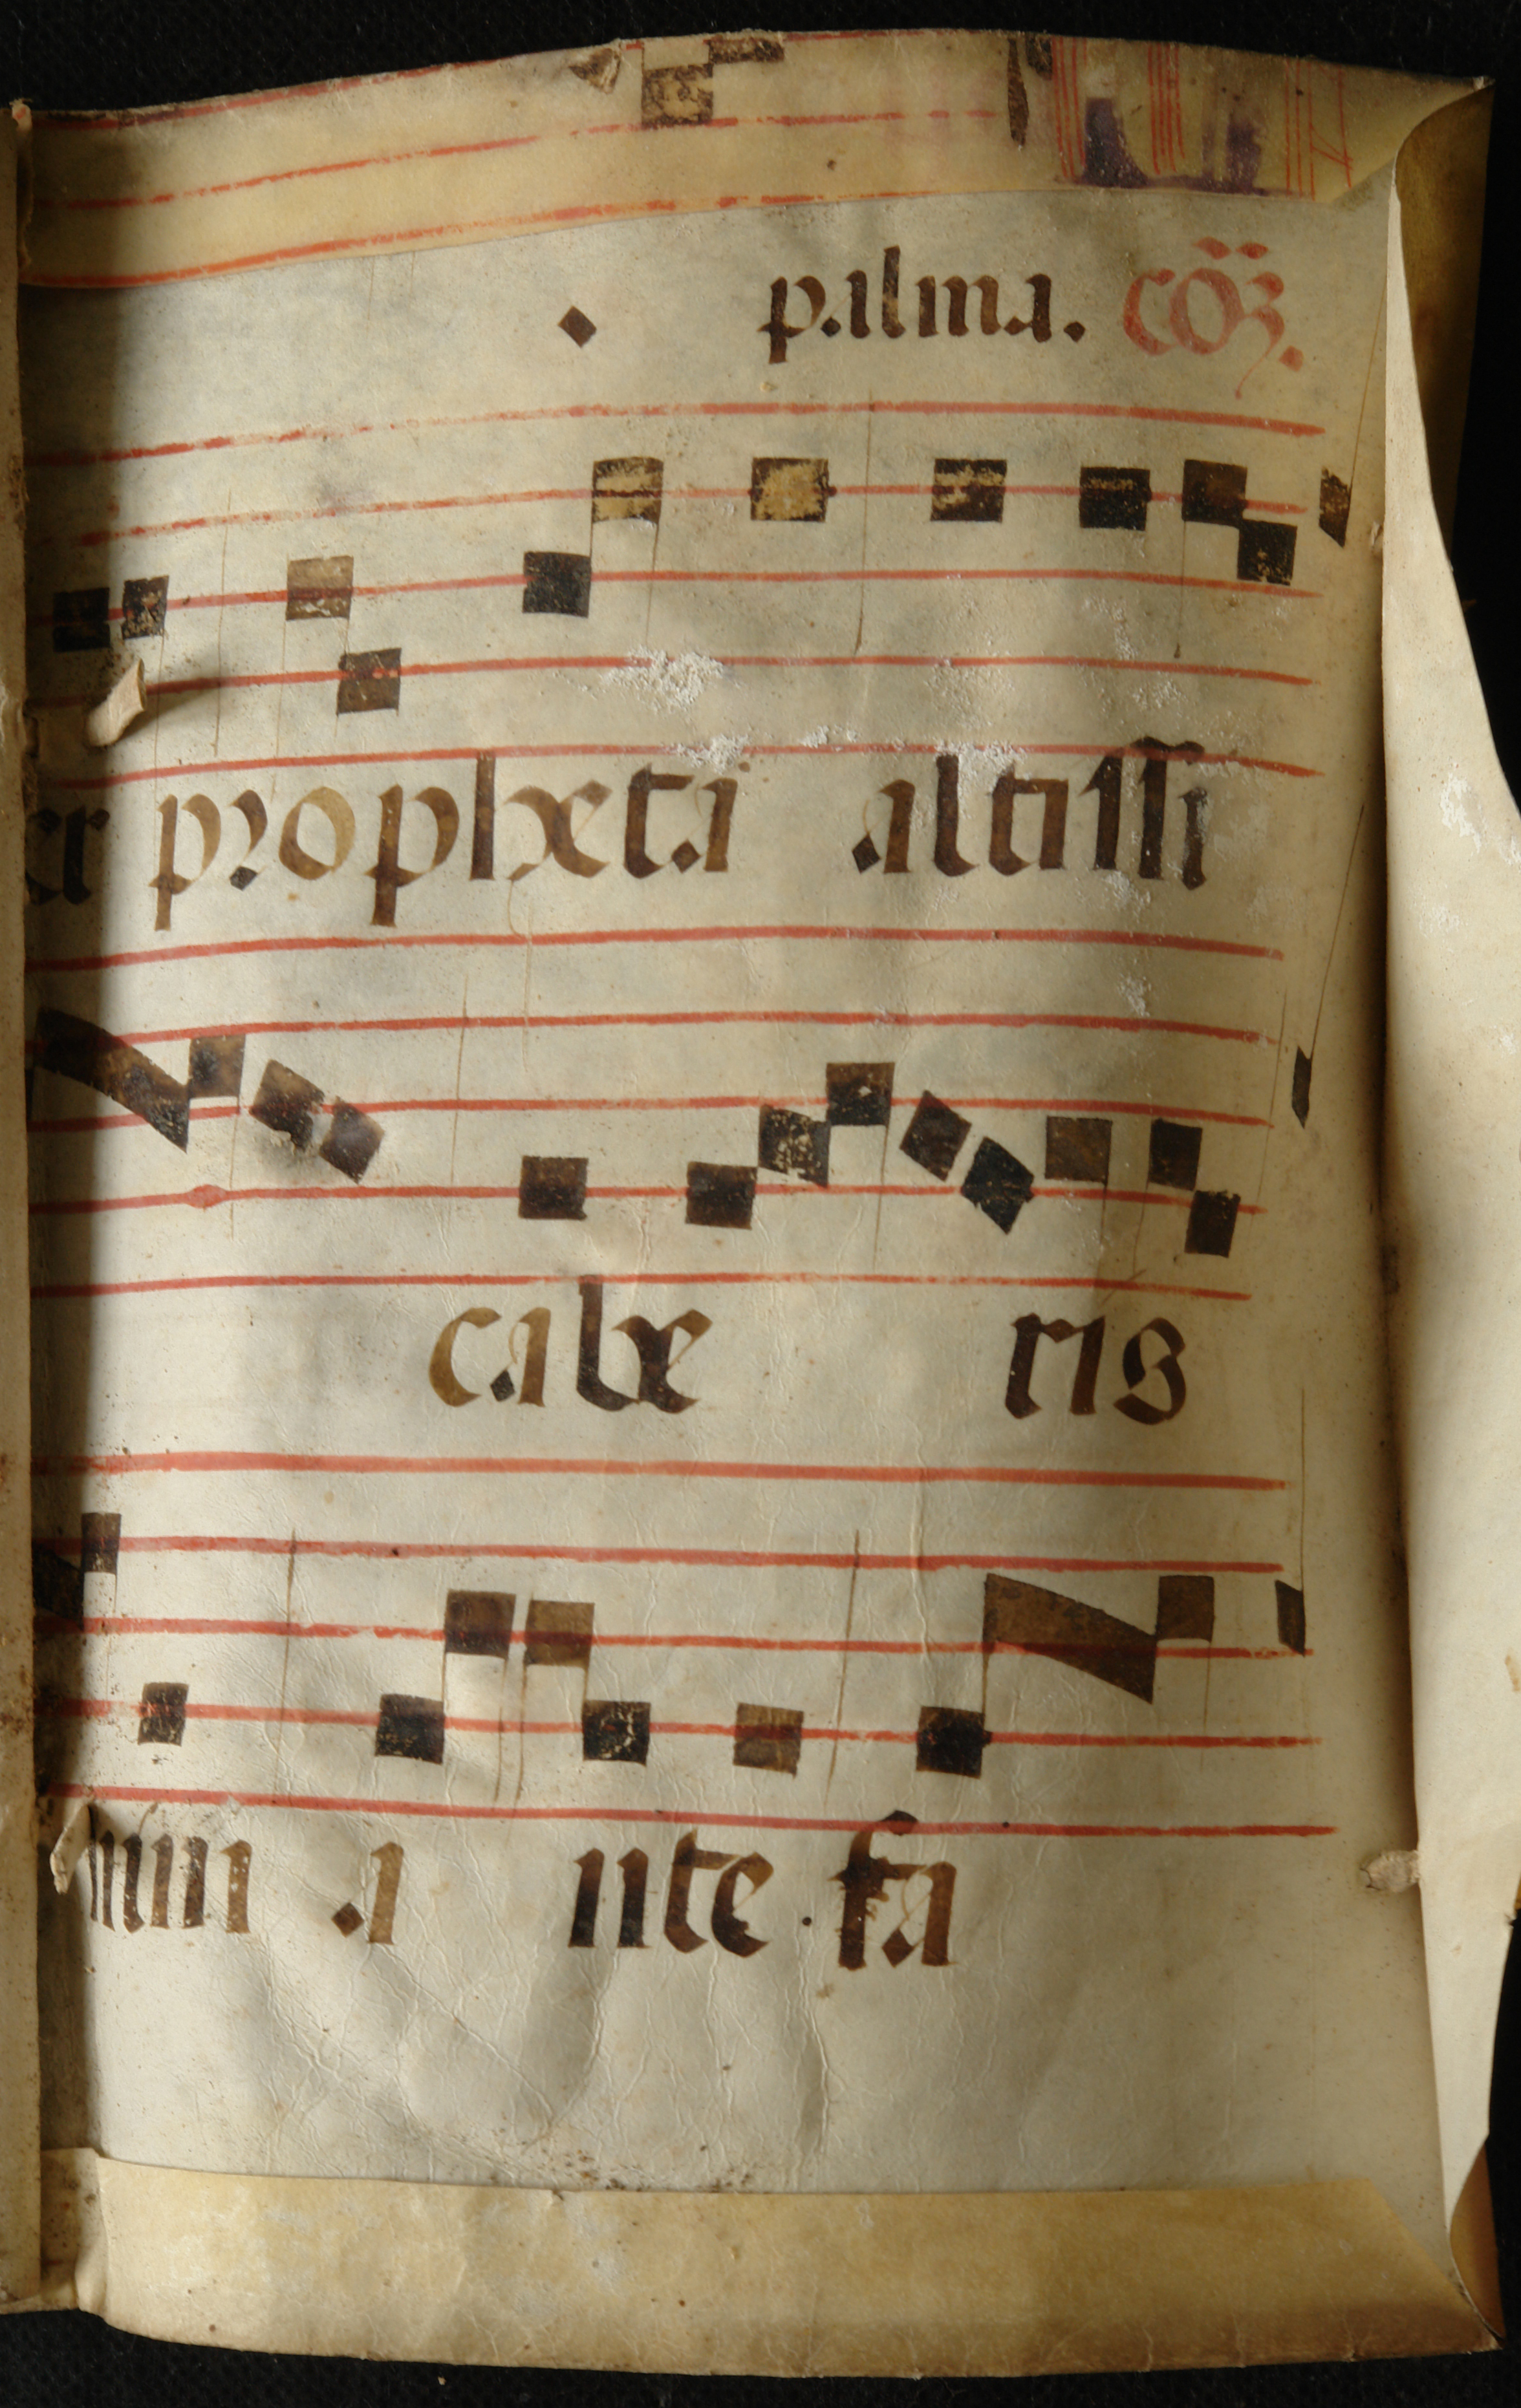 palma. cõʒ.
er propheta altissi
cabe ris
mini a nte fa